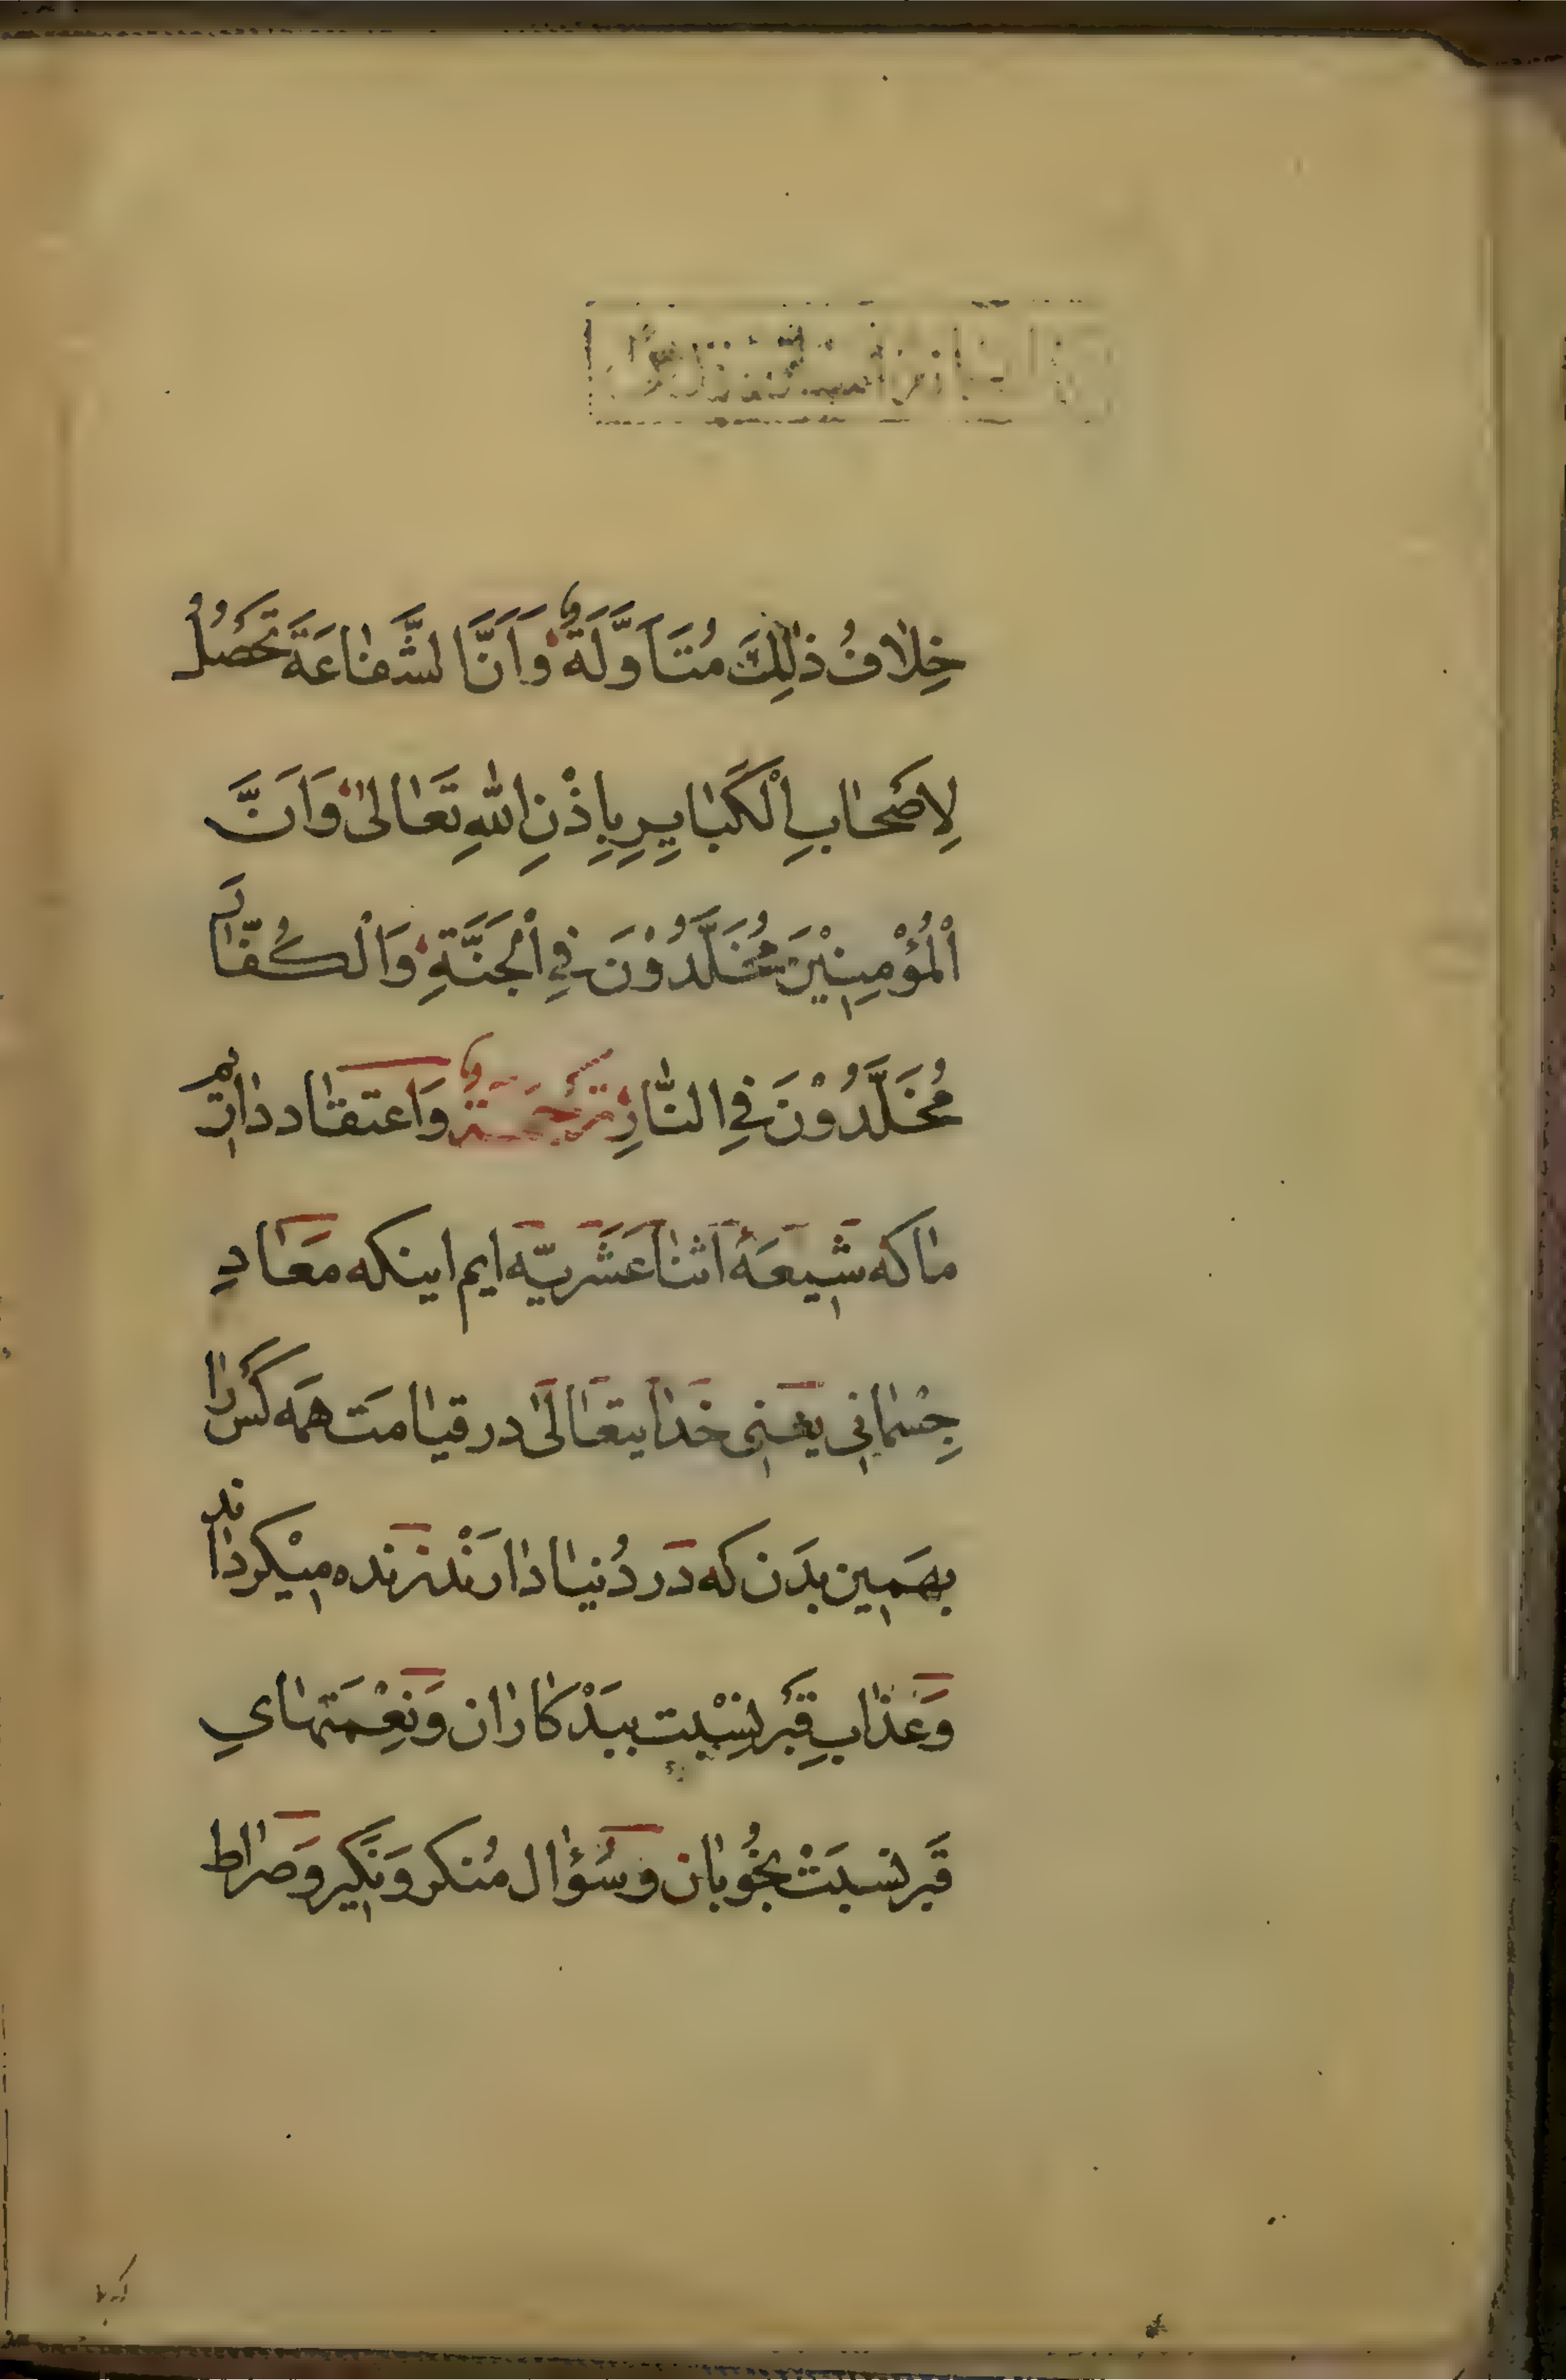 خِلافُ ذٰلِكَ مُتَأَوَّلَةٌ وَاَنَّ الشَّفاعَةَ تَحْصُلُ
لِاَصْحابِ الْكَبايِرِ بِاِذْنِ اللّٰهِ تَعالىٰ وَاَنَّ
الْمُؤْمِنِيْنَ مُخَلَّدُوْنَ فِي الْجَنَّةِ وَالْكُفّارَ
مُخَلَّدُوْنَ فِي النّارِ تَرْجَمَةٌ وَاعتقاد داريم
ما كه شيعَهٔ اثنا عَشَريّه ايم اينكه مَعادِ
جِسْمانى يعنى خدايتعالىٰ در قيامَت همَه كَس را
بهَمين بدَن كه دَر دُنيا دارَنْد زنده ميْكرداند
وَعذابِ قَبْر نِسْبت ببَدْكاران وَنِعْمَتهاىِ
قَبر نسبَتْ بخُوبان وَسُؤال مُنكر وَنَكير وَصراط